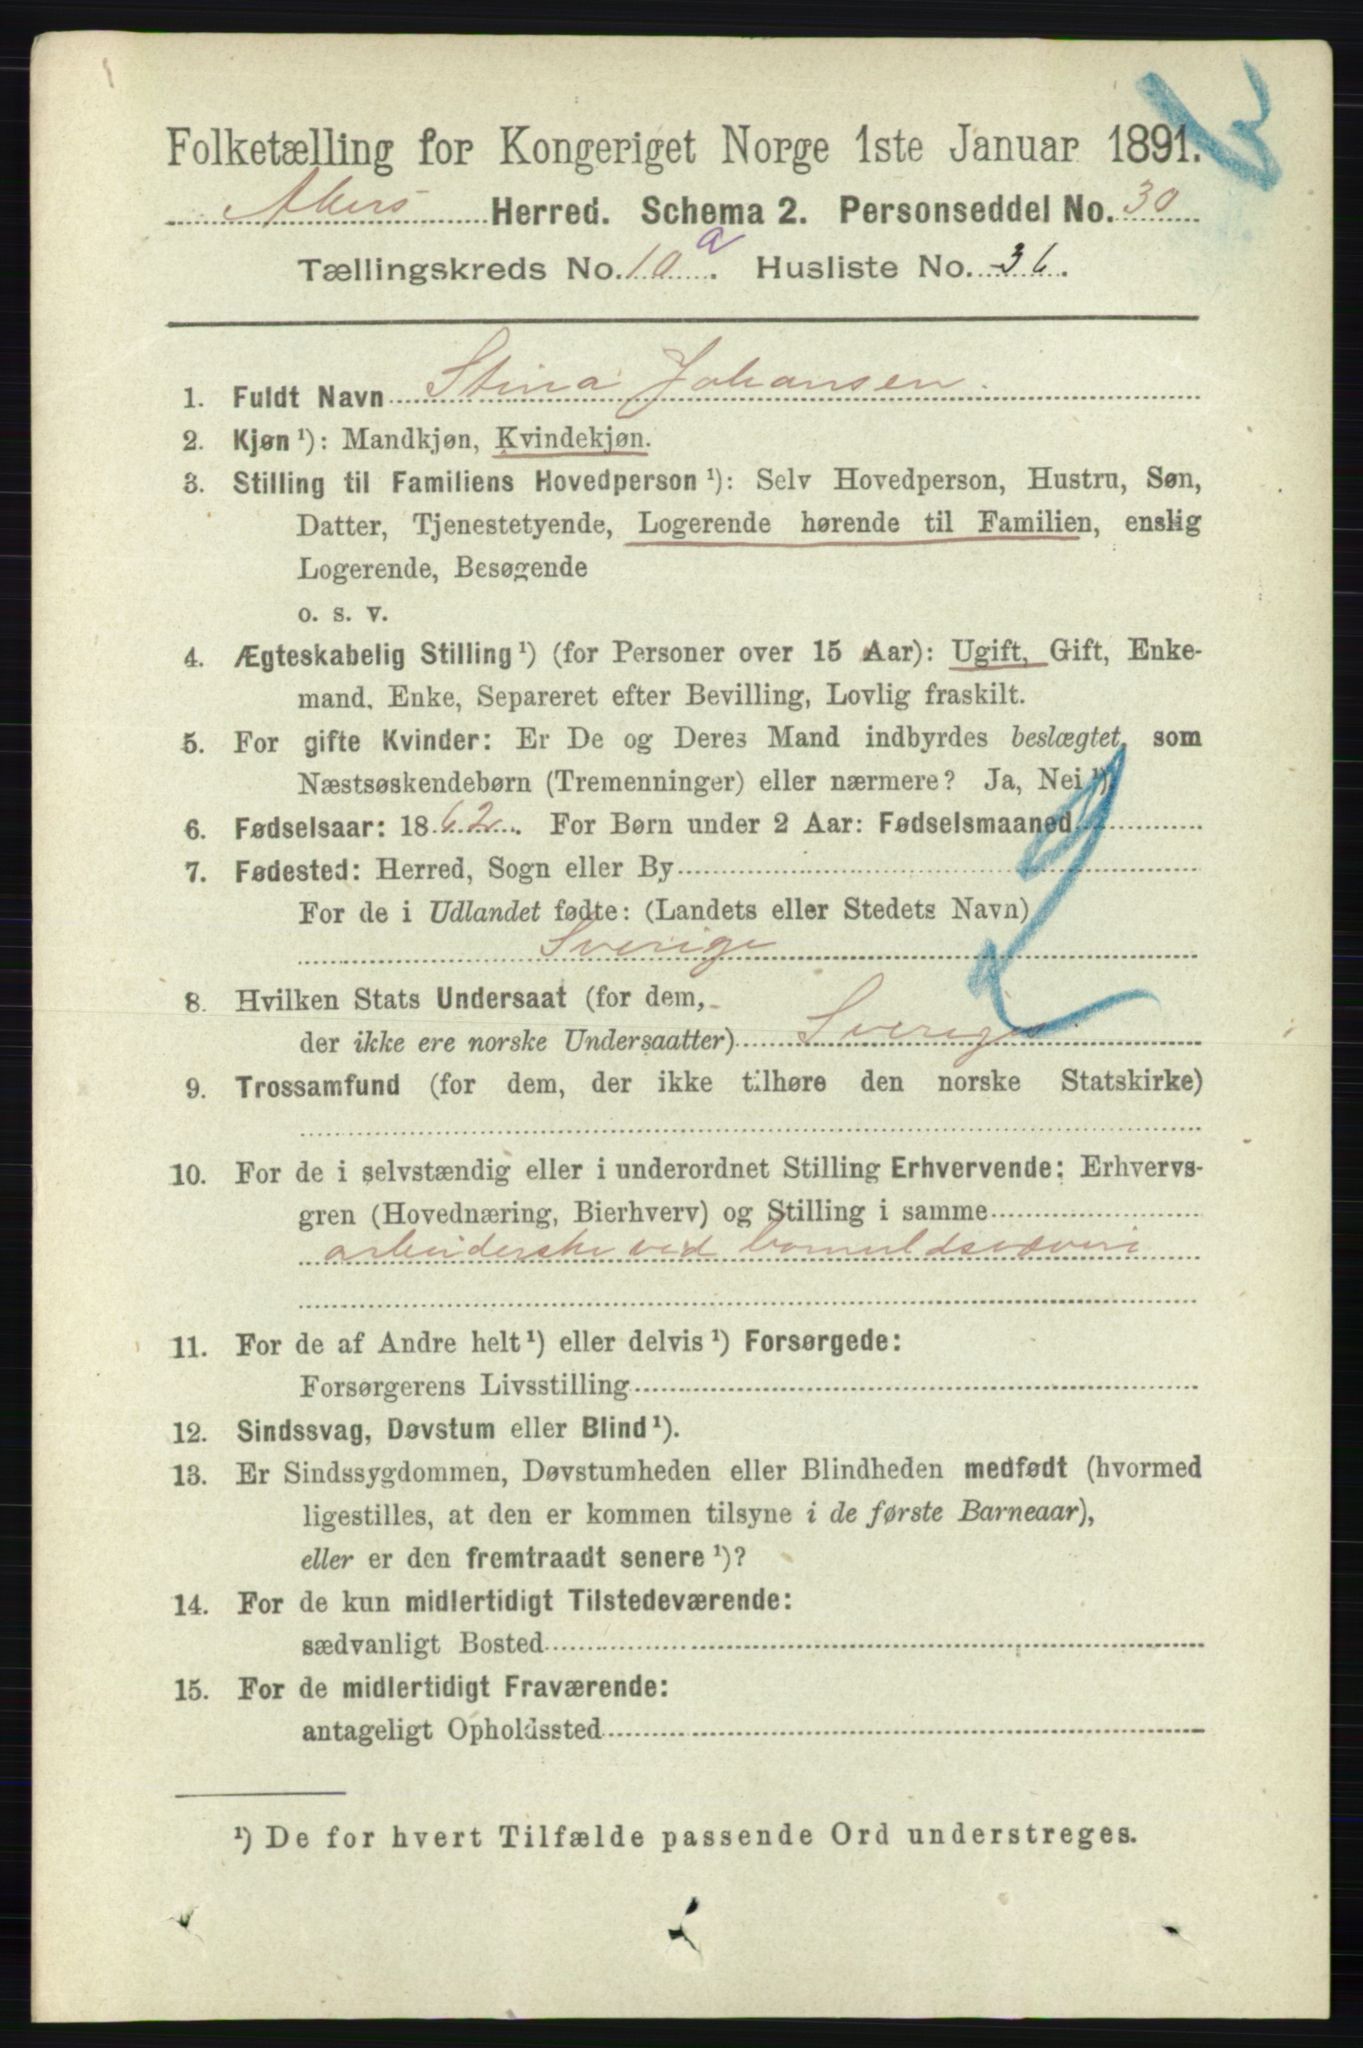 Folketælling for Kongeriget Norge 1ste Januar 1891.
Akers Herred. Schema 2. Personseddel No. 30
Tællingskreds No. 10 a. Husliste No. 36.
1. Fuldt Navn Stina Johansen.
2. Kjøn ¹): Mandkjøn, Kvindekjøn.
3. Stilling til Familiens Hovedperson ¹): Selv Hovedperson, Hustru, Søn,
Datter, Tjenestetyende, Logerende hørende til Familien, enslig
Logerende, Besøgende
o. s. v.
4. Ægteskabelig Stilling ¹) (for Personer over 15 Aar): Ugift, Gift, Enke-
mand, Enke, Separeret efter Bevilling, Lovlig fraskilt.
5. For gifte Kvinder: Er De og Deres Mand indbyrdes beslægtet, som
Næstsøskendebørn (Tremenninger) eller nærmere? Ja, Nei ¹)
6. Fødselsaar: 1862. For Børn under 2 Aar: Fødselsmaaned
7. Fødested: Herred, Sogn eller By
For de i Udlandet fødte: (Landets eller Stedets Navn)
Sverige
8. Hvilken Stats Undersaat (for dem,
der ikke ere norske Undersaatter) Sveriges
9. Trossamfund (for dem, der ikke tilhøre den norske Statskirke)
10. For de i selvstændig eller i underordnet Stilling Erhvervende: Erhvervs-
gren (Hovednæring, Bierhverv) og Stilling i samme
arbeiderske ved bomuldsvæveri
11. For de af Andre helt ¹) eller delvis ¹) Forsørgede:
Forsørgerens Livsstilling
12. Sindssvag, Døvstum eller Blind ¹).
13. Er Sindssygdommen, Døvstumheden eller Blindheden medfødt (hvormed
ligestilles, at den er kommen tilsyne i de første Barneaar),
eller er den fremtraadt senere ¹)?
14. For de kun midlertidigt Tilstedeværende:
sædvanligt Bosted
15. For de midlertidigt Fraværende:
antageligt Opholdssted
¹) De for hvert Tilfælde passende Ord understreges.